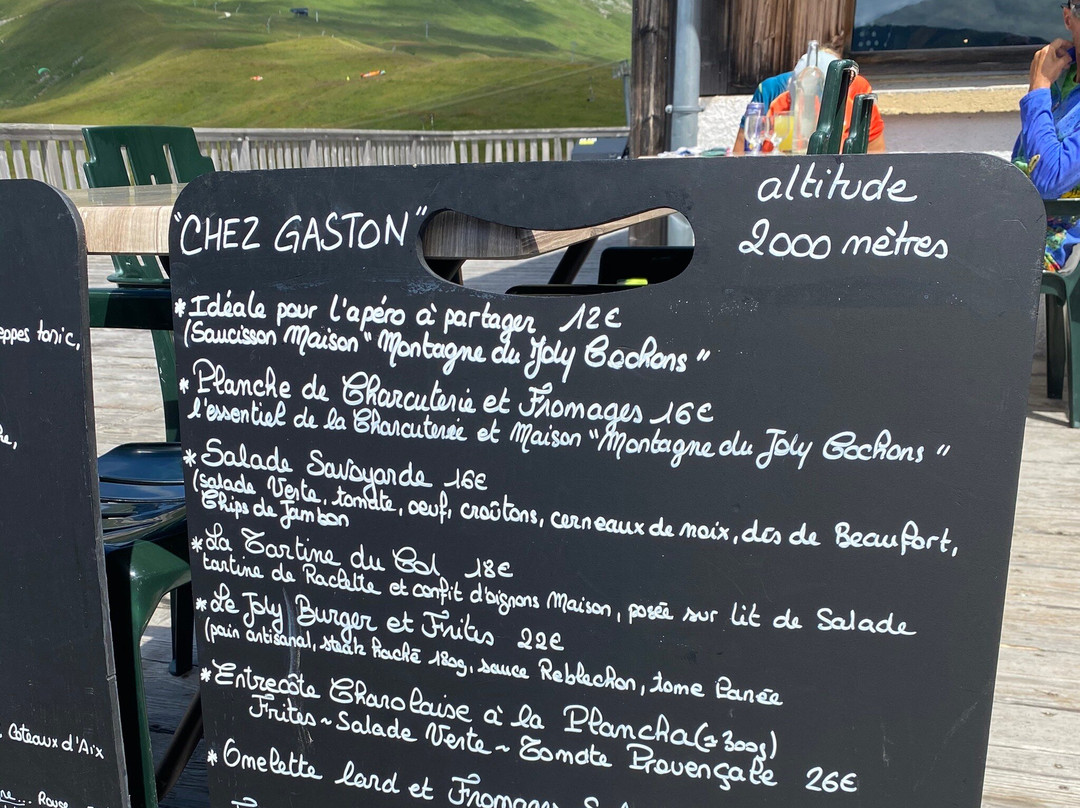 eppes tonic,
Coteaux d'Aix
"CHEZ GASTON"
altitude
2000 mètres
*Idéale pour l'apéro à partager 12€
(Saucisson Maison "Montagne du Joly Cochons"
*Planche de Charcuterie et Fromages 16€
l'essentiel de la Charcuterie et Maison "Montagne du Joly Cochons"
*Salade Savoyarde 16€
(salade Verte, tomate, oeuf, croûtons, cerneaux de noix, dés de Beaufort,
Chips de Jambon
*La Tartine du Col 18€
tartine de Raclette et confit d'oignons Maison, posée sur lit de Salade
*Le Joly Burger et Frites 22€
(pain artisanal, steak haché 180g, sauce Reblochon, tome Panée
*Entrecôte Charolaise à la Plancha (±300g)
Frites ~ Salade Verte ~ Tomate Provençale 26€
*Omelette lard et